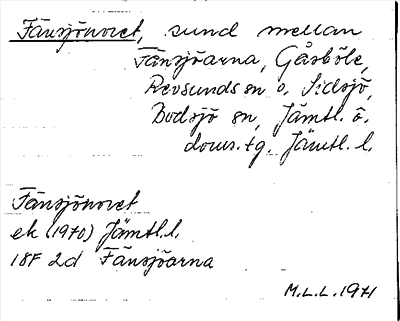 Fänsjönoret, sund mellan
Fänsjöarna, Gåsböle,
Revsunds sn o. Sidsjö,
Bodsjö sn, Jämtl. ö.
doms. tg, Jämtl. l.
Fänsjönoret
ek (1970) Jämtl. l.
18F 2d Fänsjöarna
M.L.L. 1971